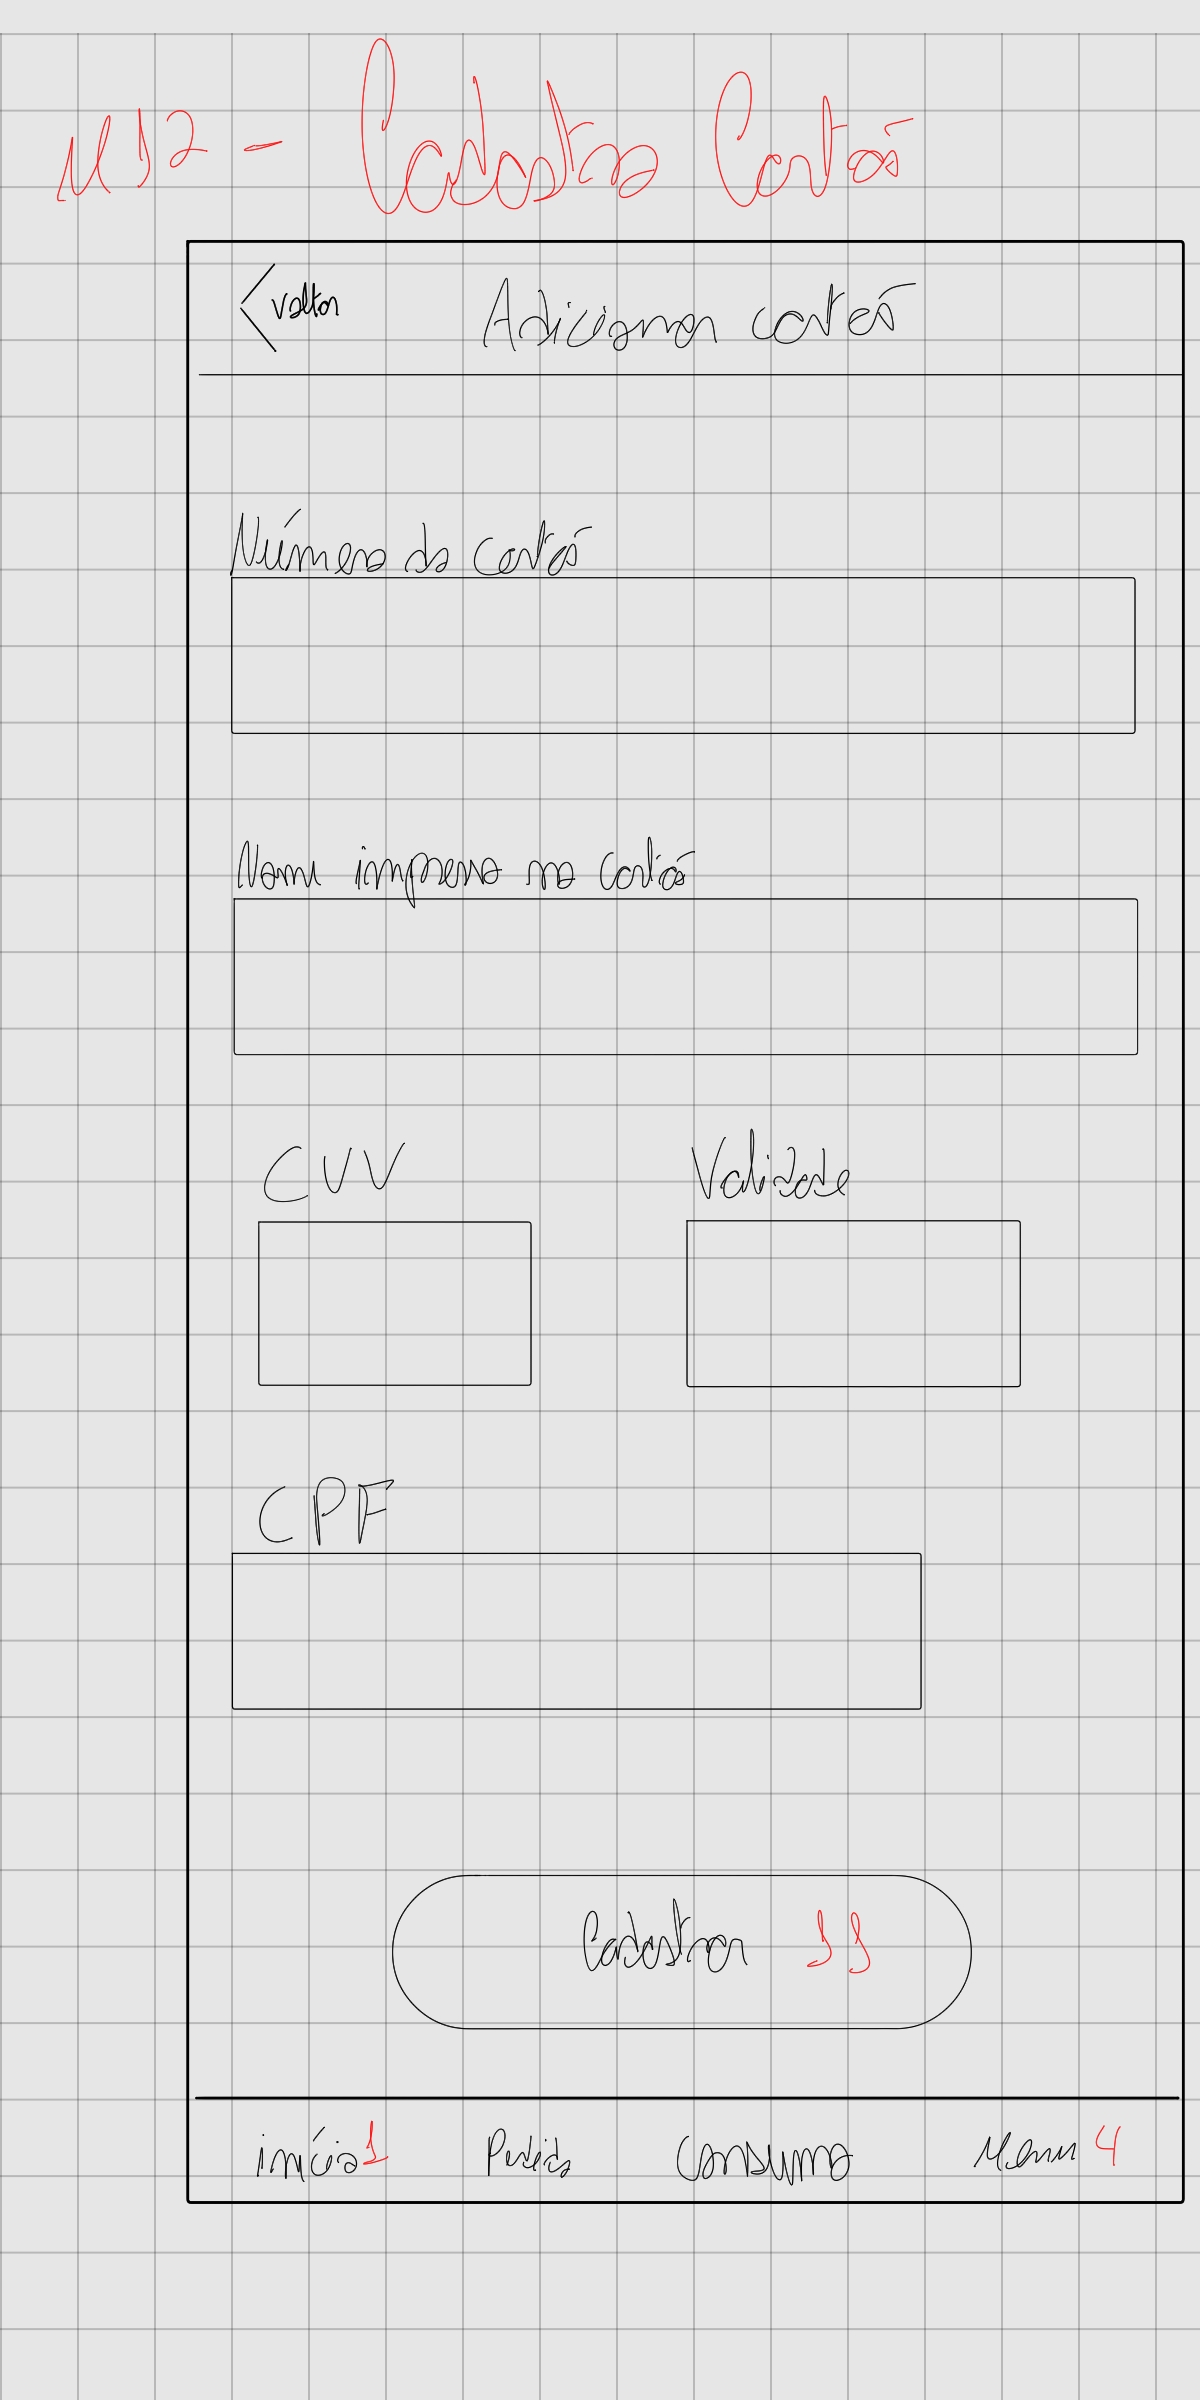 M12 - Cadastro Cartão
< Voltar Adicionar cartão
Número do cartão
Nome impresso no cartão
CVV Validade
CPF
Cadastrar 11
início 1 Pedido Consumo Menu 4